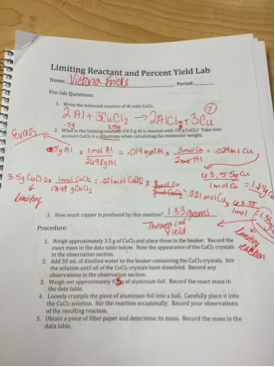 Limiting Reactant and Percent Yield Lab
Name: Victoria Period:
Pre-lab Questions:
1. Write the balanced reaction of Al with CuCl₂.
2Al + 3CuCl₂ → 2AlCl₃ + 3Cu
.5g 3.5g
Excess
2. What is the limiting reactant if 0.5 g Al is reacted with 3.5 g CuCl₂? Take into
account CuCl₂ is a dihydrate when calculating the molecular weight.
.5g Al × 1mol Al = .019molAl × 3molCu = .029mol Cu
26.98gAl 2mol Al
63.55gCu
1molCu
3.5g CuCl₂ × 1mol CuCl₂ = .021molCuCl₂ × = .021molCu
limiting
3. How much copper is produced by this reaction? 1.33grams
Theoretical
Yield
limiting
reaction
Procedure:
1. Weigh approximately 3.5 g of CuCl₂ and place them in the beaker. Record the
exact mass in the data table below. Note the appearance of the CuCl₂ crystals
in the observation section.
2. Add 50 mL of distilled water to the beaker containing the CuCl₂ crystals. Stir
the solution until all of the CuCl₂ crystals have dissolved. Record any
observations in the observation section.
3. Weigh out approximately g of aluminum foil. Record the exact mass in
the data table.
4. Loosely crumple the piece of aluminum foil into a ball. Carefully place it into
the CuCl₂ solution. Stir the reaction occasionally. Record your observations
of the resulting reaction.
5. Obtain a piece of filter paper and determine its mass. Record the mass in the
data table.